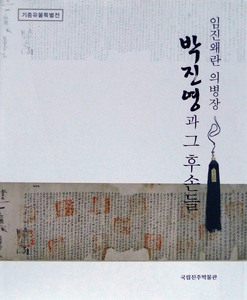 기증유물특별전
임진왜란 의병장
박진영과 그 후손들
국립진주박물관